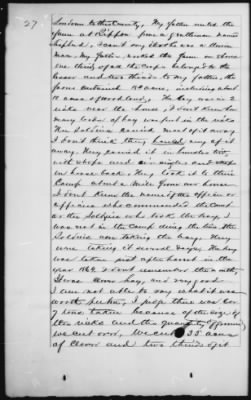 27
in this County, My father rented the
farm at Rippon from a gentleman named
Shepherd, I can't say if he was a Union
man. My father rented the farm on shares
one third of all the crops belonged to the
lessor and two thirds to my father, the
farm contained acres, including about
15 acres of woodland, The hay was in 2
ricks near the house, I don't know how
many loads of hay was put in the ricks
The Soldiers carried most of it away
I don't think they any of it
away. They carried it in bundles tied
with ropes and
on horse back. They took it to their
Camp about a mile from our house.
I don't know the name of the officer or
officers who commanded the Camp
or the Soldiers who took the hay. I
was not in the Camp during the time the
Soldiers were taking the hay. They
were taking it several days. The hay
was taken just after harvest in the
year 1864. I don't remember the month
It was hay, and very good
I am not able to say what it was
worth per ton, I judge there was
7 tons taken because of the size of
the ricks and the quantity of ground
we cut over. We cut 35 acres
of clover and two thirds of it